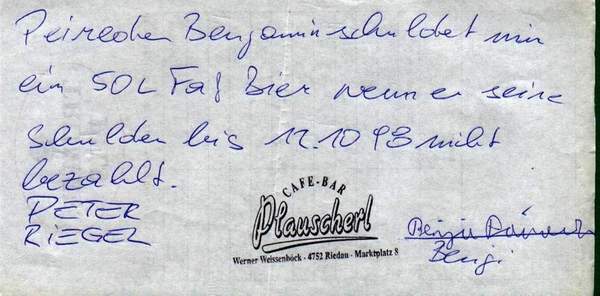 Benjamin schuldet mir
ein 50L Faß Bier wenn er seine
Schulden bis 12.10 93 nicht
bezahlt.
PETER
RIEGEL
CAFE-BAR
Plauscherl
Werner Weissenböck - 4752 Riedau - Marktplatz 8
Bengi